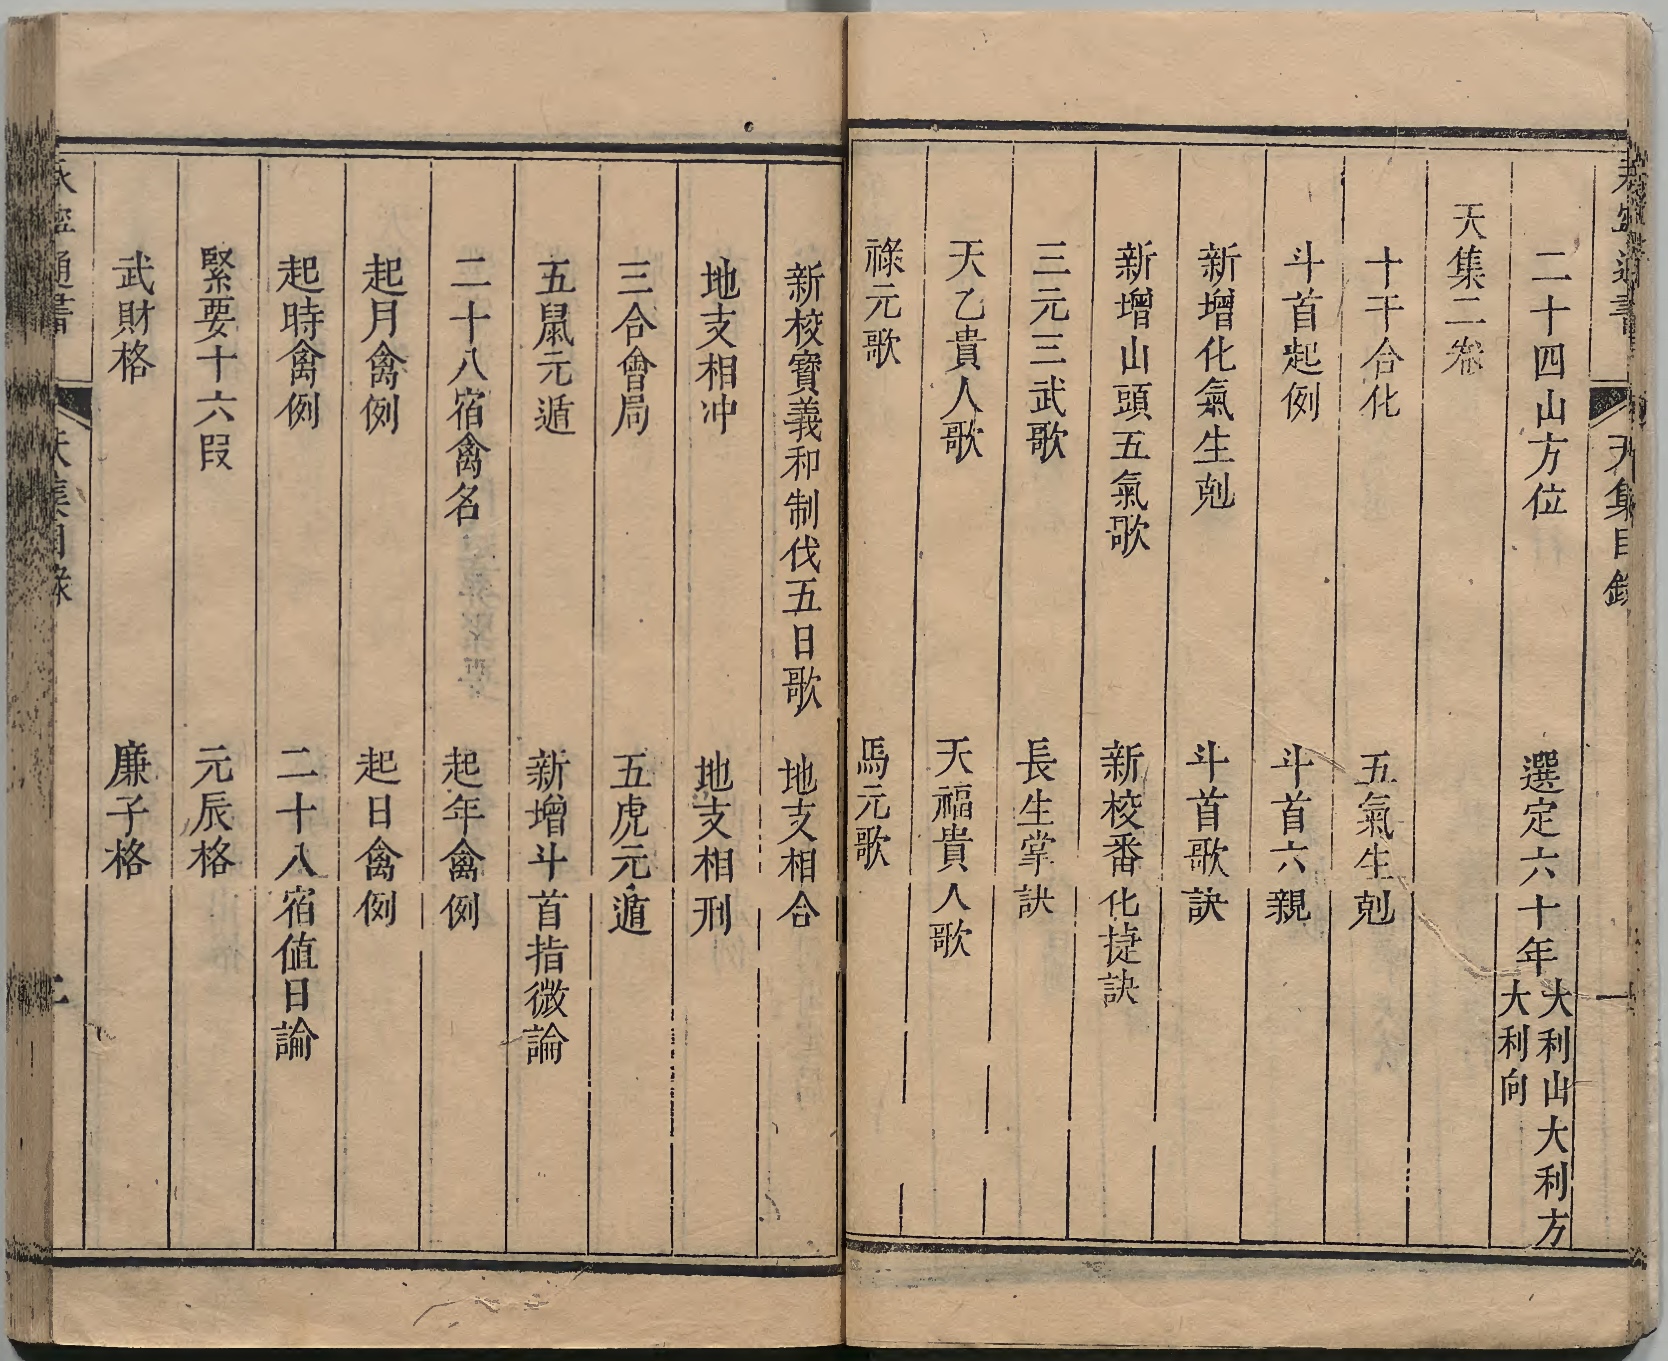 通書
天集目錄
一
二十四山方位　選定六十年大利山大利方大利向
天集二卷
十干合化　五氣生剋
斗首起例　斗首六親
新增化氣生剋　斗首歌訣
新增山頭五氣歌　新校番化捷訣
三元三武歌　長生掌訣
天乙貴人歌　天福貴人歌
祿元歌　馬元歌
新校寶義和制伐五日歌　地支相合
地支相冲　地支相刑
三合會局　五虎元遁
五鼠元遁　新增斗首指微論
二十八宿禽名　起年禽例
起月禽例　起日禽例
起時禽例　二十八宿值日論
緊要十六叚　元辰格
武財格　廉子格
通書
天集目錄
二